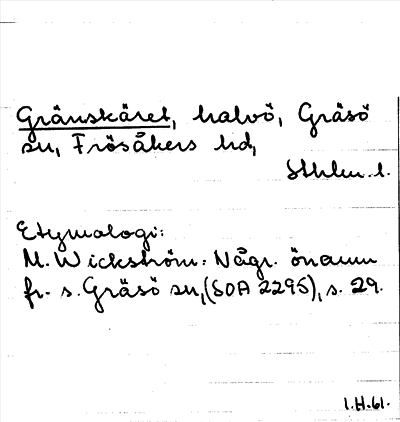 Gränskäret, halvö, Gräsö
sn, Frösåkers hd,
Sthlm. l.
Etymologi:
M. Wickström: Någr. önamn
fr. s. Gräsö sn, (SOA 2295), s. 29.
1.H.61.